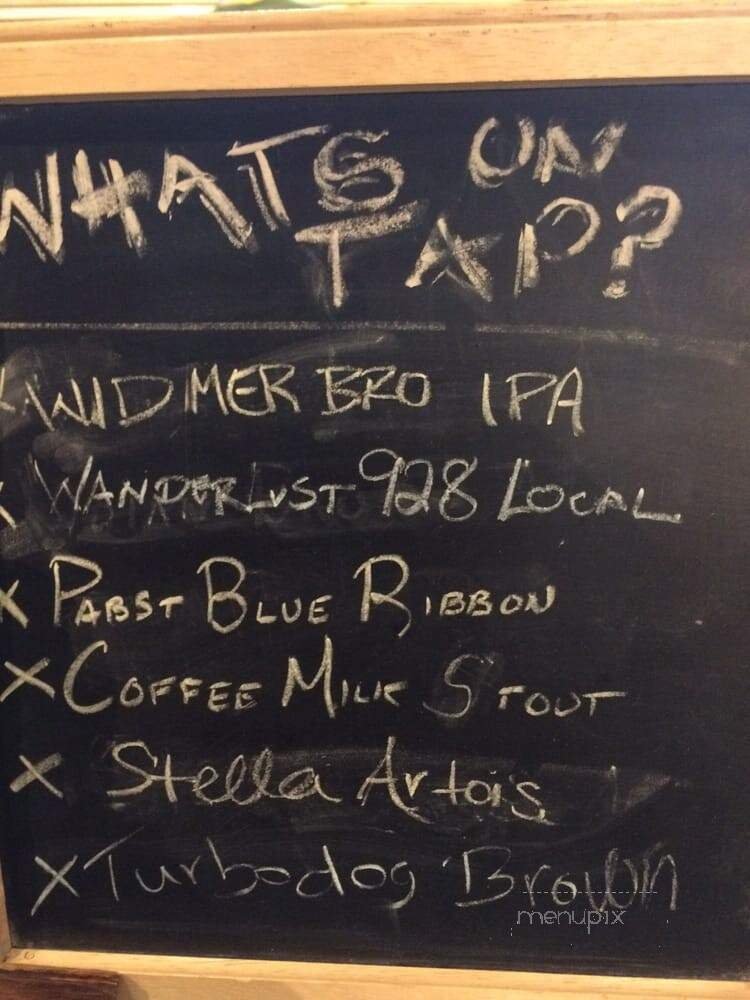 WHATS ON
TAP?
X WIDMER BRO IPA
X WANDERLUST 928 LOCAL
X PABST BLUE RIBBON
X COFFEE MILK STOUT
X Stella Artois
X Turbodog Brown
menupix